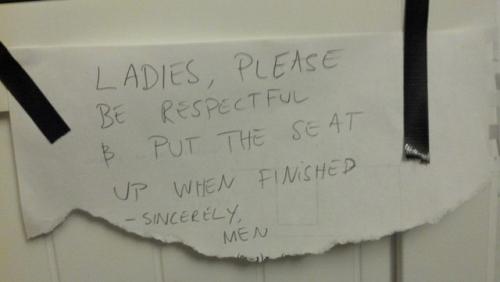 LADIES, PLEASE
BE RESPECTFUL
& PUT THE SEAT
UP WHEN FINISHED
-SINCERELY,
MEN